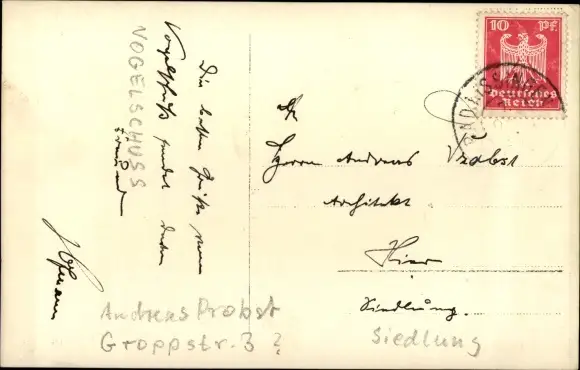 Die besten Grüße vom
Vogelschuß sendet Dein
VOGELSCHUSS
Freund
Hofmann
10 Pf.
Deutsches
Reich
An
Herrn Andreas Probst
Architekt
Hier
Siedlung.
Siedlung
Andreas Probst
Groppstr. 3 ?